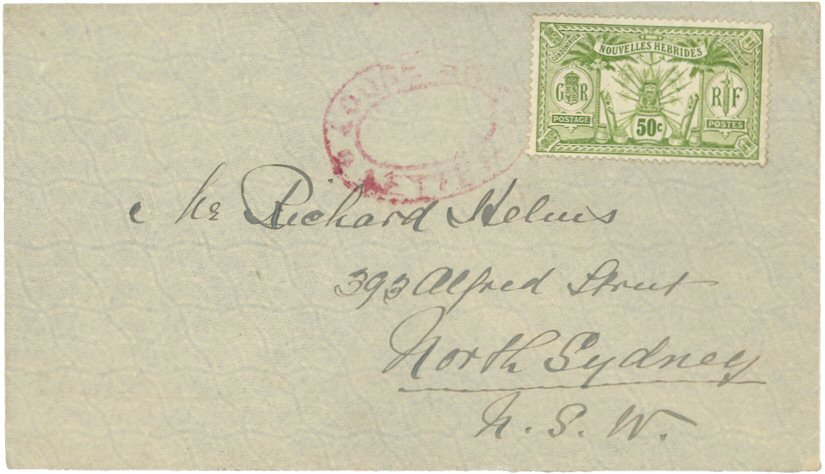 LOOSE
LETTER
CONDOMINIUM
NOUVELLES HEBRIDES
G R
R F
POSTAGE
50c
POSTES
Mr Richard Helms
393 Alfred Street
North Sydney
N. S. W.